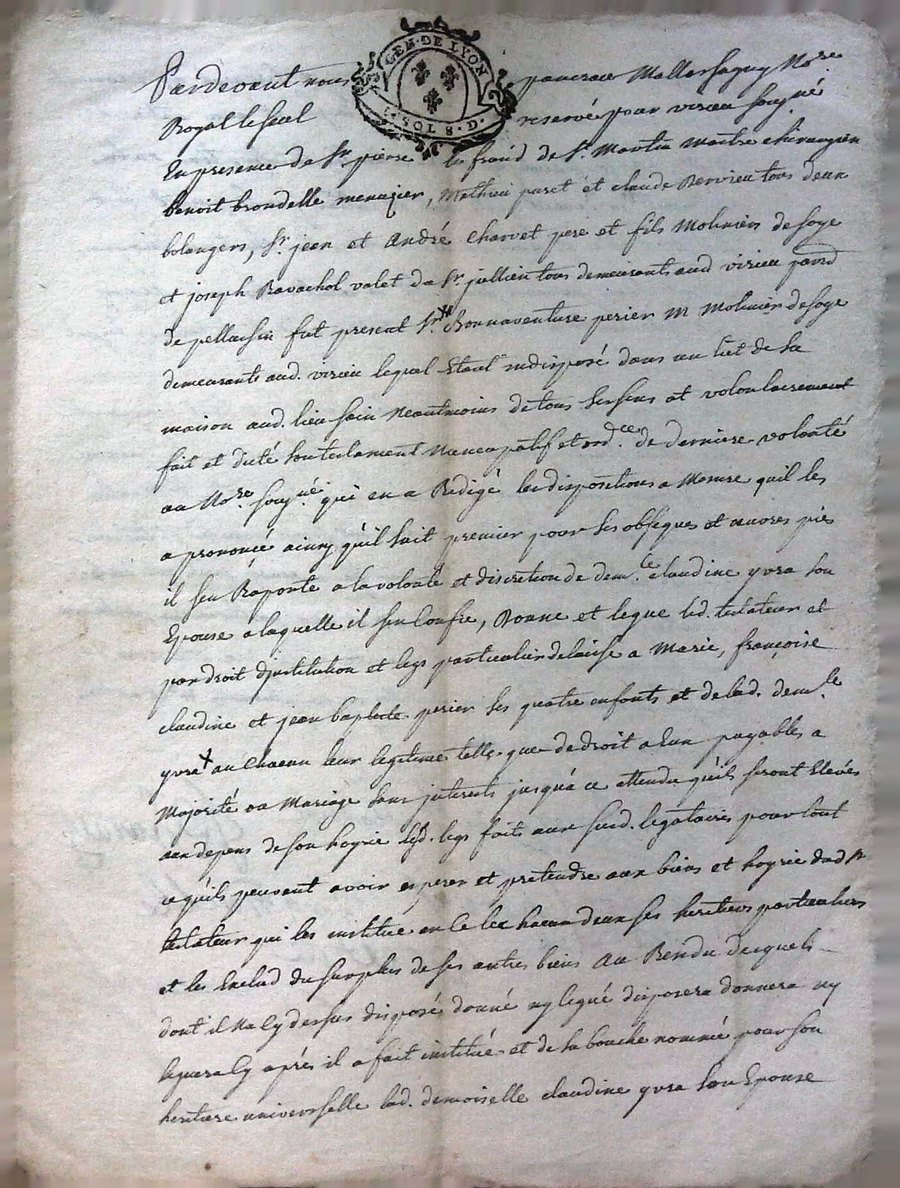 GEN. DE LYON
SOLS. 8. D.
Pardevant nous pancrace Mallassagny No.re
Royal le seul reservé pour virieu sousg.né
En presence de Sr. pierre la froid de St. Martin maitre chirurgien
benoit brondelle menuzier, Mathieu paret et claude Bervieu tous deux
bolangers, Sr. jean et André Charvet pere et fils Moliniers de soye
et joseph Ravachol valet du Sr. jullien tous demeurants aud virieu parr.d
de pellassin fut present Sr. Bonnaventure perier M Molinier de soye
demeurants aud. virieu lequel Etant indisposé dans un liet de sa
maison aud. lieu sain Neantmoins de tous ses sens et volontairement
fait et dicté son testament Nuncupatif et ord.ce de derniere volonté
au No.re sousg.né qui en a Redigé les dispositions a Mesure quil les
a prononcé ainsy qu'il suit premier pour ses obseques et œuvres pies
il s'en Raporte a la volonté et discretion de dem.le claudine yvra son
Epouse a laquelle il s'en Confie, Donne et legue led. testateur et
par droit d'jnstitution et legs particulier delaisse a Marie, françoise
claudine et jean baptiste perier ses quatre enfants et de lad. dem.le
yvra + au Chacun leur legitime telle que de droit a eux payables a
Majorité ou Mariage sans jnterets jusqu'a ce attendu qu'ils seront Elevés
aux depens de son hoyrie lesd. legs faits aux susd. legataires pour tout
ce qu'ils peuvent avoir esperer et pretendre aux biens et hoyrie dud Sr
testateur qui les institue en ce les chacun deux ses heritiers particuliers
et les Exclud du surplus de ses autres biens Au Rendu desquels
dont il Na Cy dessus disposé donné ny legué disposera donnera ny
leguera Cy aprés il a fait institué et de sa bouche nommée pour son
heritiere universelle lad. demoiselle claudine yvra son Epouse